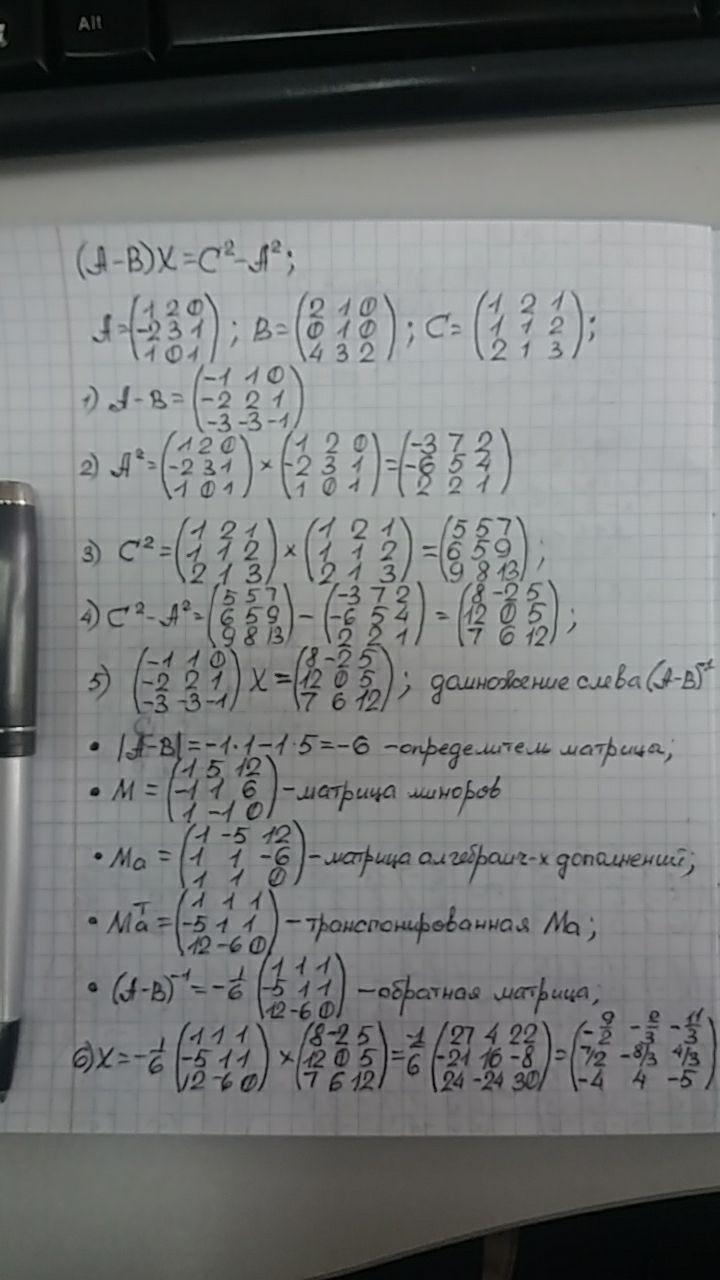 Alt
(A-B)X=C²-A²;
A=(1 2 0
-2 3 1
1 0 1); B=(2 1 0
0 1 0
4 3 2); C=(1 2 1
1 1 2
2 1 3);
1) A-B=(-1 1 0
-2 2 1
-3 -3 -1)
2) A²=(1 2 0
-2 3 1
1 0 1)×(1 2 0
-2 3 1
1 0 1)=(-3 7 2
-6 5 4
2 2 1)
3) C²=(1 2 1
1 1 2
2 1 3)×(1 2 1
1 1 2
2 1 3)=(5 5 7
6 5 9
9 8 13);
4) C²-A²=(5 5 7
6 5 9
9 8 13)-(-3 7 2
-6 5 4
2 2 1)=(8 -2 5
12 0 5
7 6 12);
5) (-1 1 0
-2 2 1
-3 -3 -1) X=(8 -2 5
12 0 5
7 6 12); домножение слева (A-B)⁻¹
• |A-B|=-1·1-1·5=-6 -определитель матрица;
• M=(1 5 12
-1 1 6
1 -1 0)-матрица миноров
• Ma=(1 -5 12
1 1 -6
1 1 0)-матрица алгебраич-х дополнений;
• Maᵀ=(1 1 1
-5 1 1
12 -6 0)-транспонированная Ma;
• (A-B)⁻¹=-1/6 (1 1 1
-5 1 1
12 -6 0)-обратная матрица;
6) X=-1/6 (1 1 1
-5 1 1
12 -6 0)×(8 -2 5
12 0 5
7 6 12)=-1/6 (27 4 22
-21 16 -8
24 -24 30)=(-9/2 -2/3 -11/3
7/2 -8/3 4/3
-4 4 -5)